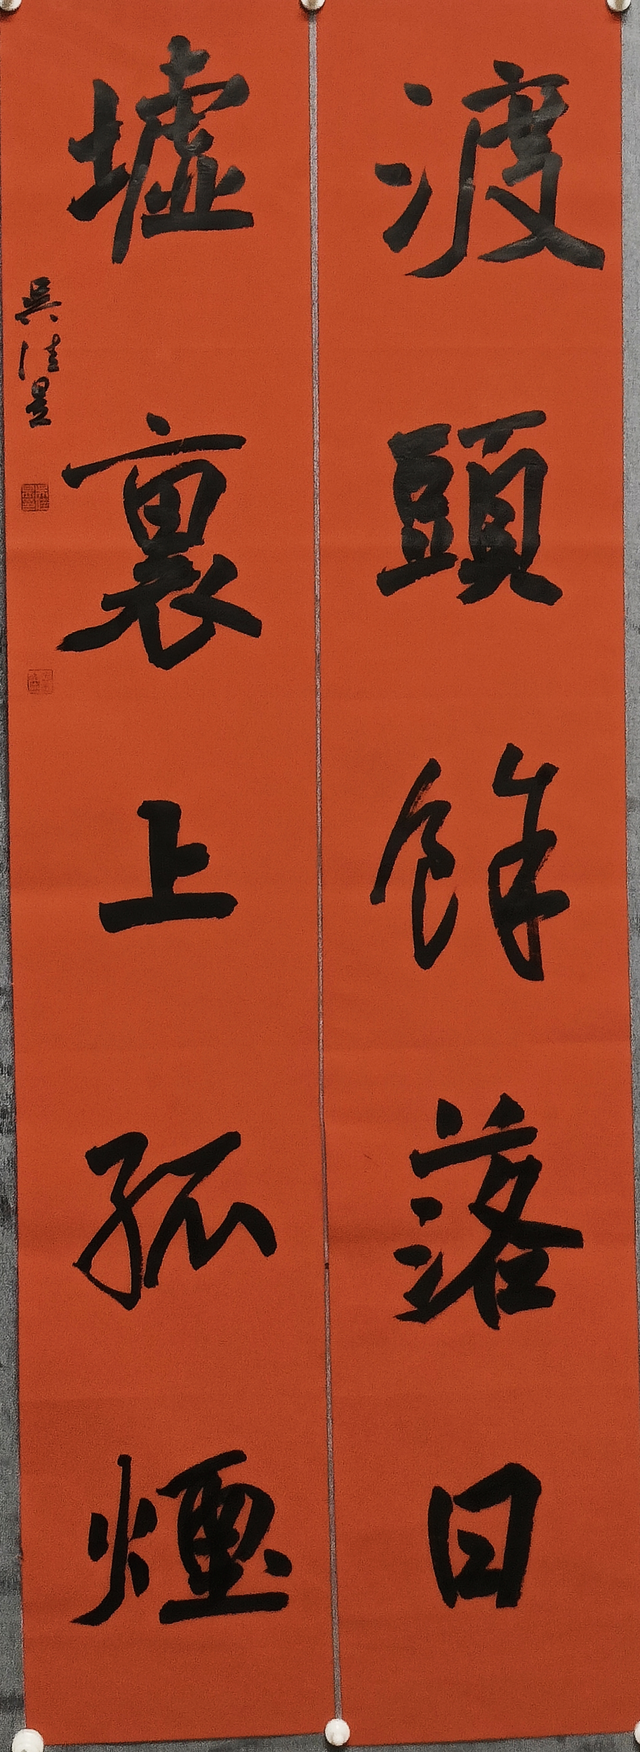 渡頭餘落日
墟裏上孤煙
吳佳昱